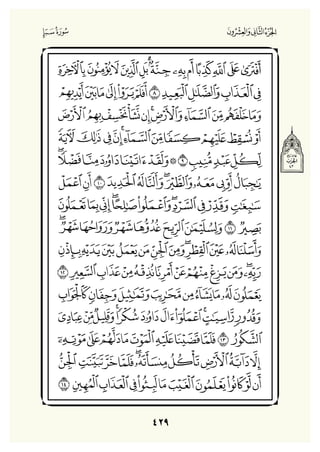 الجزء الثاني والعشرون سورة سبإ
أَفْتَرَىٰ عَلَى ٱللَّهِ كَذِبًا أَم بِهِۦ جِنَّةٌۢ ۗ بَلِ ٱلَّذِينَ لَا يُؤْمِنُونَ بِٱلْءَاخِرَةِ
فِى ٱلْعَذَابِ وَٱلضَّلَٰلِ ٱلْبَعِيدِ ٨ أَفَلَمْ يَرَوْا۟ إِلَىٰ مَا بَيْنَ أَيْدِيهِمْ
وَمَا خَلْفَهُم مِّنَ ٱلسَّمَآءِ وَٱلْأَرْضِ ۚ إِن نَّشَأْ نَخْسِفْ بِهِمُ ٱلْأَرْضَ
أَوْ نُسْقِطْ عَلَيْهِمْ كِسَفًا مِّنَ ٱلسَّمَآءِ ۚ إِنَّ فِى ذَٰلِكَ لَءَايَةً
لِّكُلِّ عَبْدٍ مُّنِيبٍ ٩ ۞ وَلَقَدْ ءَاتَيْنَا دَاوُۥدَ مِنَّا فَضْلًا ۖ
يَٰجِبَالُ أَوِّبِى مَعَهُۥ وَٱلطَّيْرَ ۖ وَأَلَنَّا لَهُ ٱلْحَدِيدَ ١٠ أَنِ ٱعْمَلْ
سَٰبِغَٰتٍ وَقَدِّرْ فِى ٱلسَّرْدِ ۖ وَٱعْمَلُوا۟ صَٰلِحًا ۖ إِنِّى بِمَا تَعْمَلُونَ
بَصِيرٌ ١١ وَلِسُلَيْمَٰنَ ٱلرِّيحَ غُدُوُّهَا شَهْرٌ وَرَوَاحُهَا شَهْرٌ ۖ
وَأَسَلْنَا لَهُۥ عَيْنَ ٱلْقِطْرِ ۖ وَمِنَ ٱلْجِنِّ مَن يَعْمَلُ بَيْنَ يَدَيْهِ بِإِذْنِ
رَبِّهِۦ ۖ وَمَن يَزِغْ مِنْهُمْ عَنْ أَمْرِنَا نُذِقْهُ مِنْ عَذَابِ ٱلسَّعِيرِ ١٢
يَعْمَلُونَ لَهُۥ مَا يَشَآءُ مِن مَّحَٰرِيبَ وَتَمَٰثِيلَ وَجِفَانٍ كَٱلْجَوَابِ
وَقُدُورٍ رَّاسِيَٰتٍ ۚ ٱعْمَلُوٓا۟ ءَالَ دَاوُۥدَ شُكْرًا ۚ وَقَلِيلٌ مِّنْ عِبَادِىَ
ٱلشَّكُورُ ١٣ فَلَمَّا قَضَيْنَا عَلَيْهِ ٱلْمَوْتَ مَا دَلَّهُمْ عَلَىٰ مَوْتِهِۦٓ
إِلَّا دَآبَّةُ ٱلْأَرْضِ تَأْكُلُ مِنسَأَتَهُۥ ۖ فَلَمَّا خَرَّ تَبَيَّنَتِ ٱلْجِنُّ
أَن لَّوْ كَانُوا۟ يَعْلَمُونَ ٱلْغَيْبَ مَا لَبِثُوا۟ فِى ٱلْعَذَابِ ٱلْمُهِينِ ١٤
٤٢٩